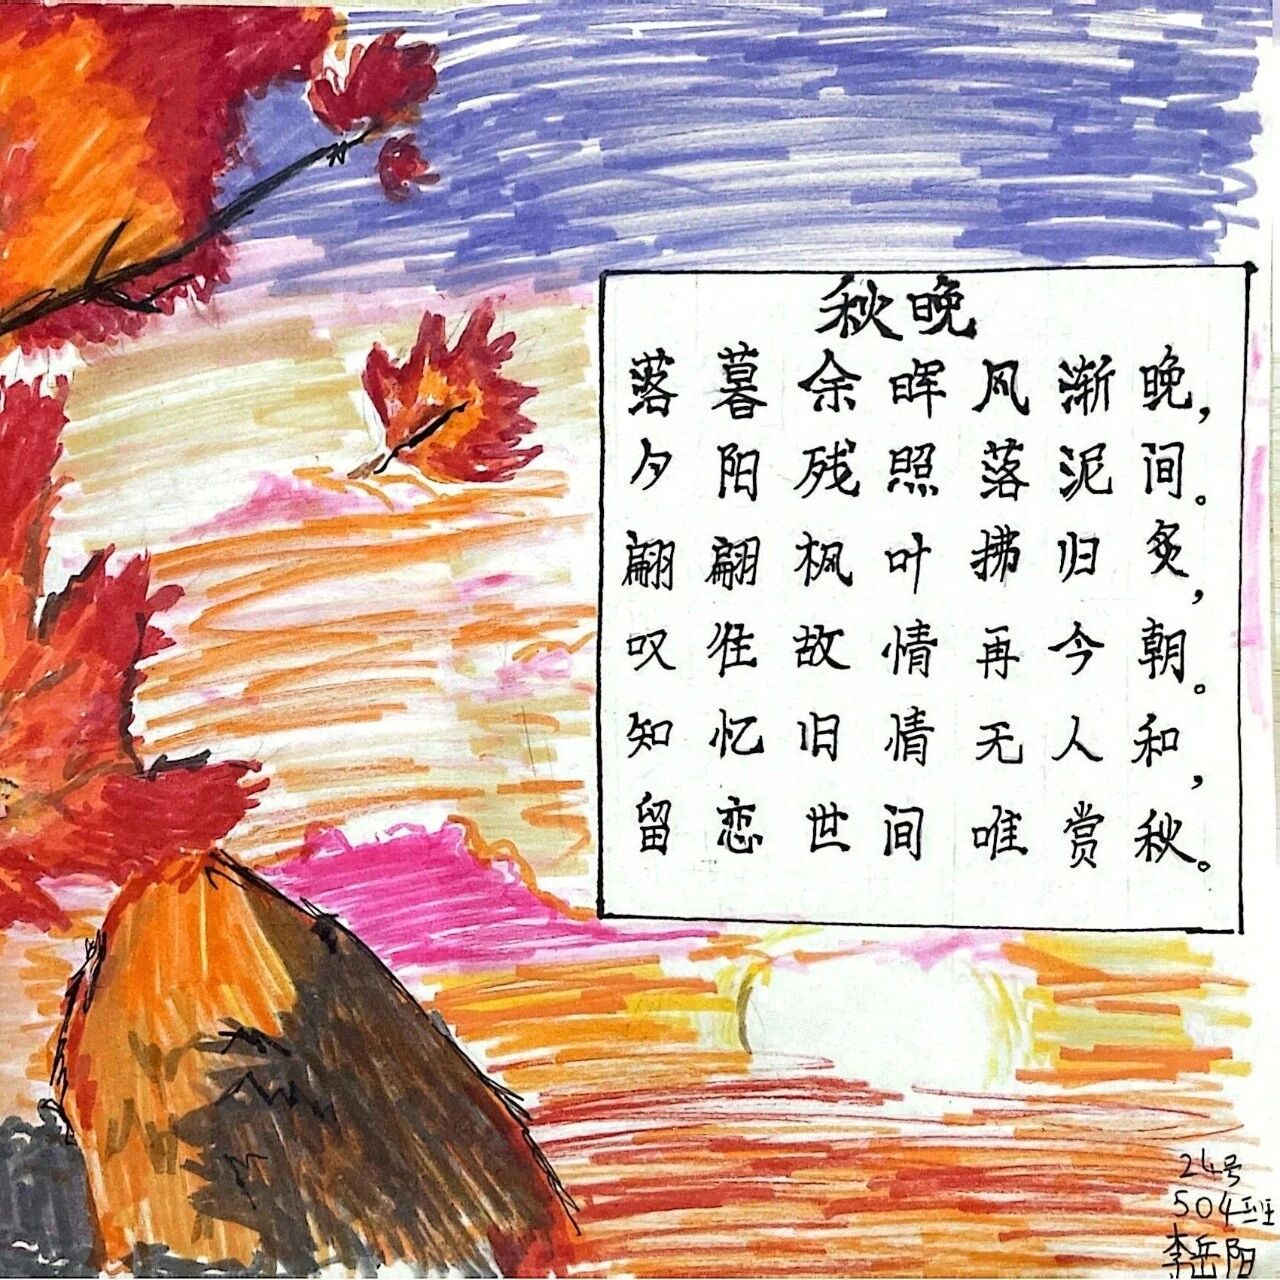 秋晚
落暮余晖风渐晚，
夕阳残照落泥间。
翩翩枫叶拂归炙，
叹往故情再今朝。
知忆旧情无人和，
留恋世间唯赏秋。
24号
504班
李岳阳